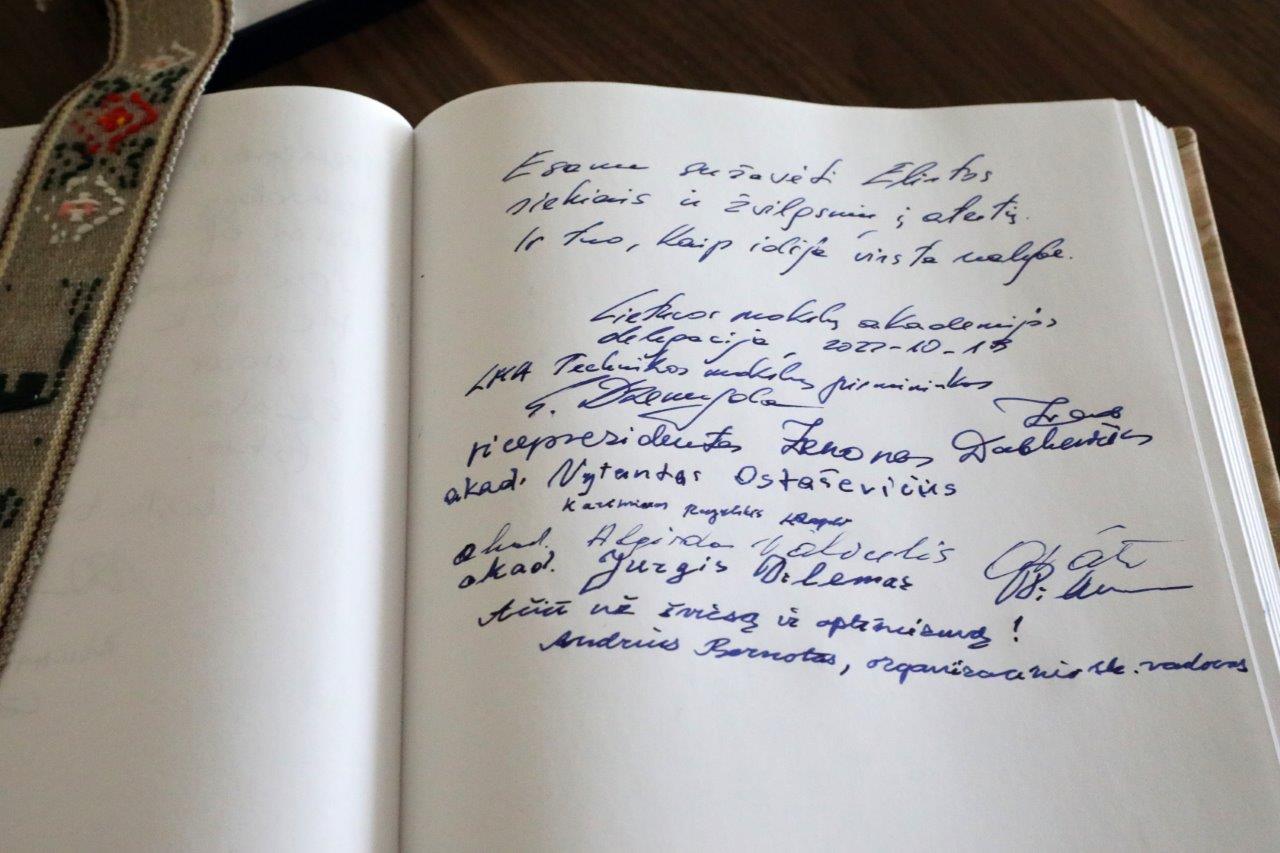 Esame sužavėti Elintos
siekiais ir žvilgsniu į ateitį.
Ir tuo, kaip idėja virsta realybe.
Lietuvos mokslų akademijos
delegacija, 2022-10-13
LMA Technikos mokslų pirmininkas
G. Dzemyda
viceprezidentas Zenonas Dabkevičius
akad. Vytautas Ostaševičius
akad. Algirdas
akad. Jurgis Vilemas
Ačiū už šviesą ir optimizmą!
Andrius Bernotas, organizacinio sk. vadovas